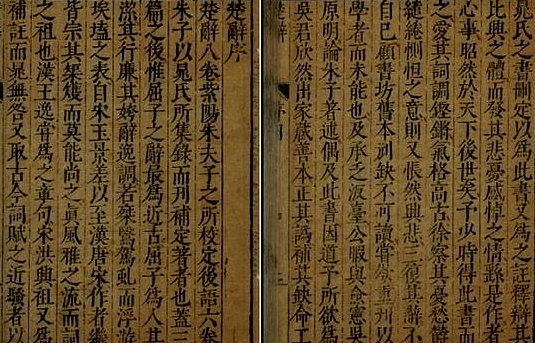 楚辭序
楚辭八卷紫陽朱夫子之所校定後語六卷
朱子以晁氏所集錄而刊補定著者也蓋三
篇之後惟屈子之辭最爲近古屈子爲人其
潔其行廉其姱辭逸調若椉鷖駕虬而浮游
埃壒之表自宋玉景差以至漢唐宋作者繼
皆宗其榘矱而莫能尚之眞風雅之流而詞
之祖也漢王逸嘗爲之章句宋洪興祖又爲
補註而晁無咎又取古今詞賦之近騷者以
晁氏之書刪定以爲此書又爲之註釋辯其
比興之體而發其悲憂感悼之情繇是作者
心事昭然於天下後世矣予少時得此書而
之愛其詞調鏗鏘氣格高古徐察其憂愁鬱
繾綣惻怛之意則又悵然興悲三復其辭不
自已顧書坊舊本刓缺不可讀嘗欲重刊以
學者而未能也及承乏汳臺公暇與僉憲吳
原明論朱子著述偶及此書因道予所欲爲
吳君欣然出家藏善本正其譌補其缺命工